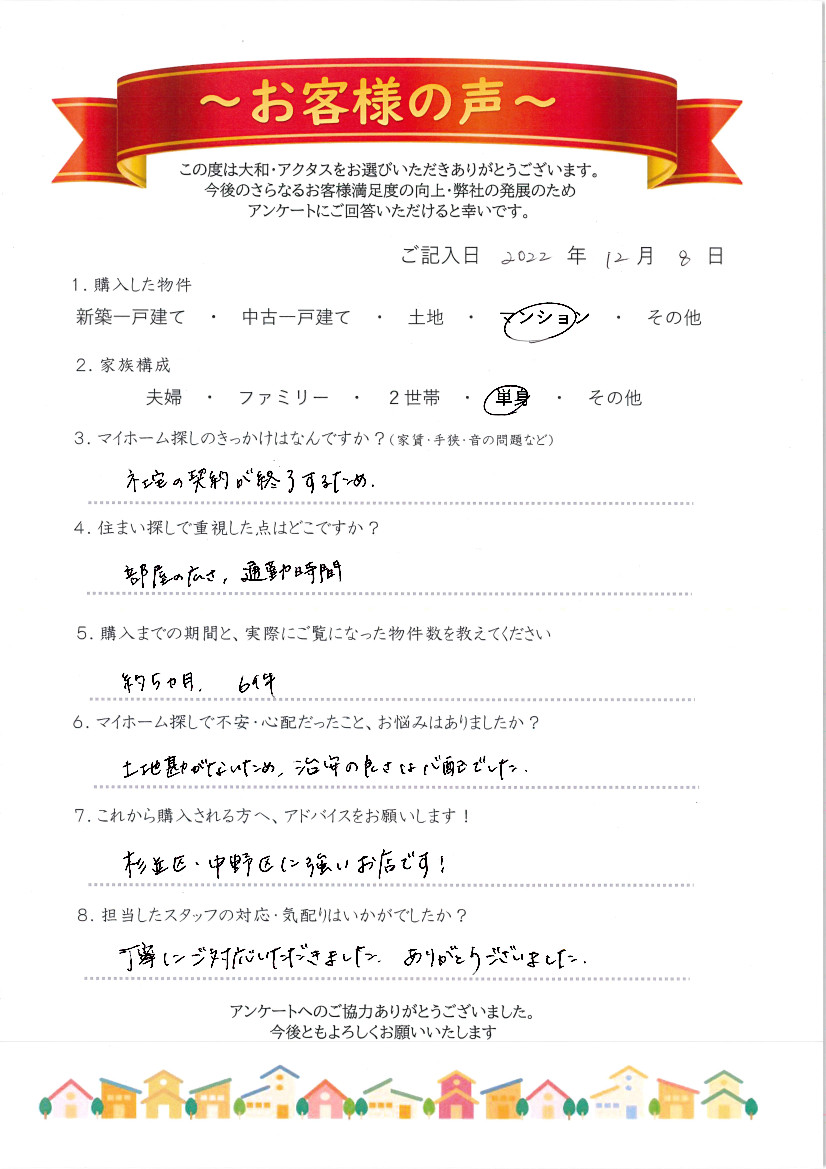 ～お客様の声～
この度は大和・アクタスをお選びいただきありがとうございます。
今後のさらなるお客様満足度の向上・弊社の発展のため
アンケートにご回答いただけると幸いです。
ご記入日 2022 年 12 月 8 日
1. 購入した物件
新築一戸建て ・ 中古一戸建て ・ 土地 ・ マンション ・ その他
2. 家族構成
夫婦 ・ ファミリー ・ 2世帯 ・ 単身 ・ その他
3. マイホーム探しのきっかけはなんですか？（家賃・手狭・音の問題など）
社宅の契約が終了するため.
4. 住まい探しで重視した点はどこですか？
部屋の広さ, 通勤時間
5. 購入までの期間と、実際にご覧になった物件数を教えてください
約5ヶ月. 6件
6. マイホーム探しで不安・心配だったこと、お悩みはありましたか？
土地勘がないため, 治安の良さは心配でした.
7. これから購入される方へ、アドバイスをお願いします！
杉並区・中野区に強いお店です!
8. 担当したスタッフの対応・気配りはいかがでしたか？
丁寧にご対応いただきました. ありがとうございました.
アンケートへのご協力ありがとうございました。
今後ともよろしくお願いいたします